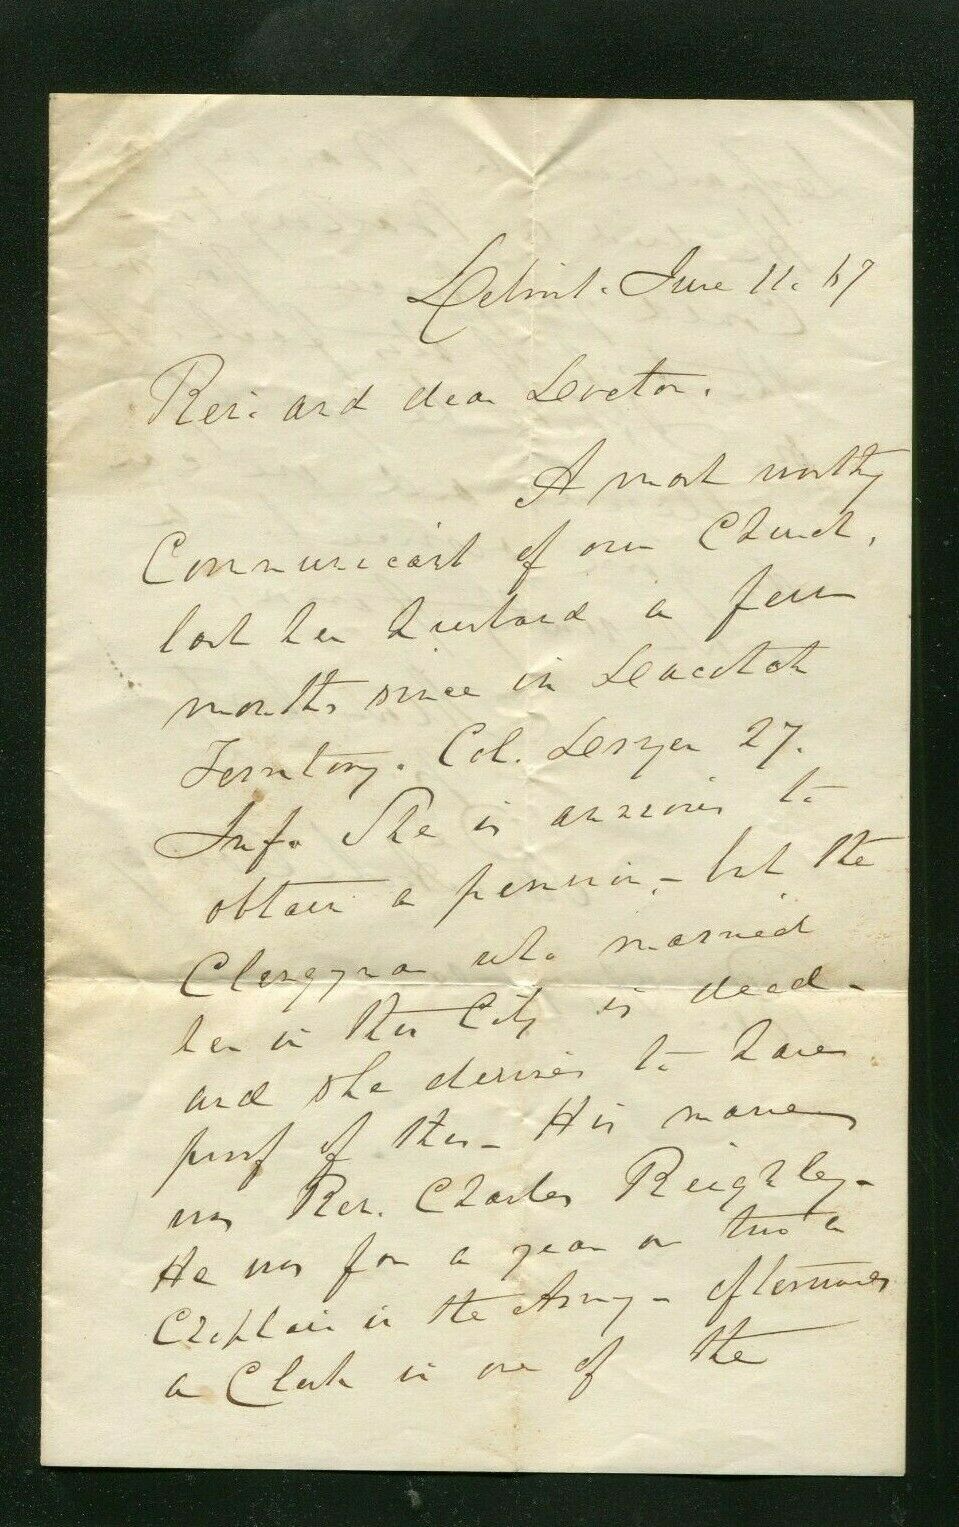 Detroit. June 11. 67
Rev. and dear Doctor.
A most worthy
Communicant of our Church,
lost her husband a few
months since in Dacotah
Territory. Col. 27.
Inf. She is anxious to
obtain a pension, - but the
Clergyman who married
her in this City is dead -
and she desires to have
proof of this - His name
was Rev. Charles Reighley -
He was for a year or two a
Chaplain in the Army - afterwards
a Clerk in one of the